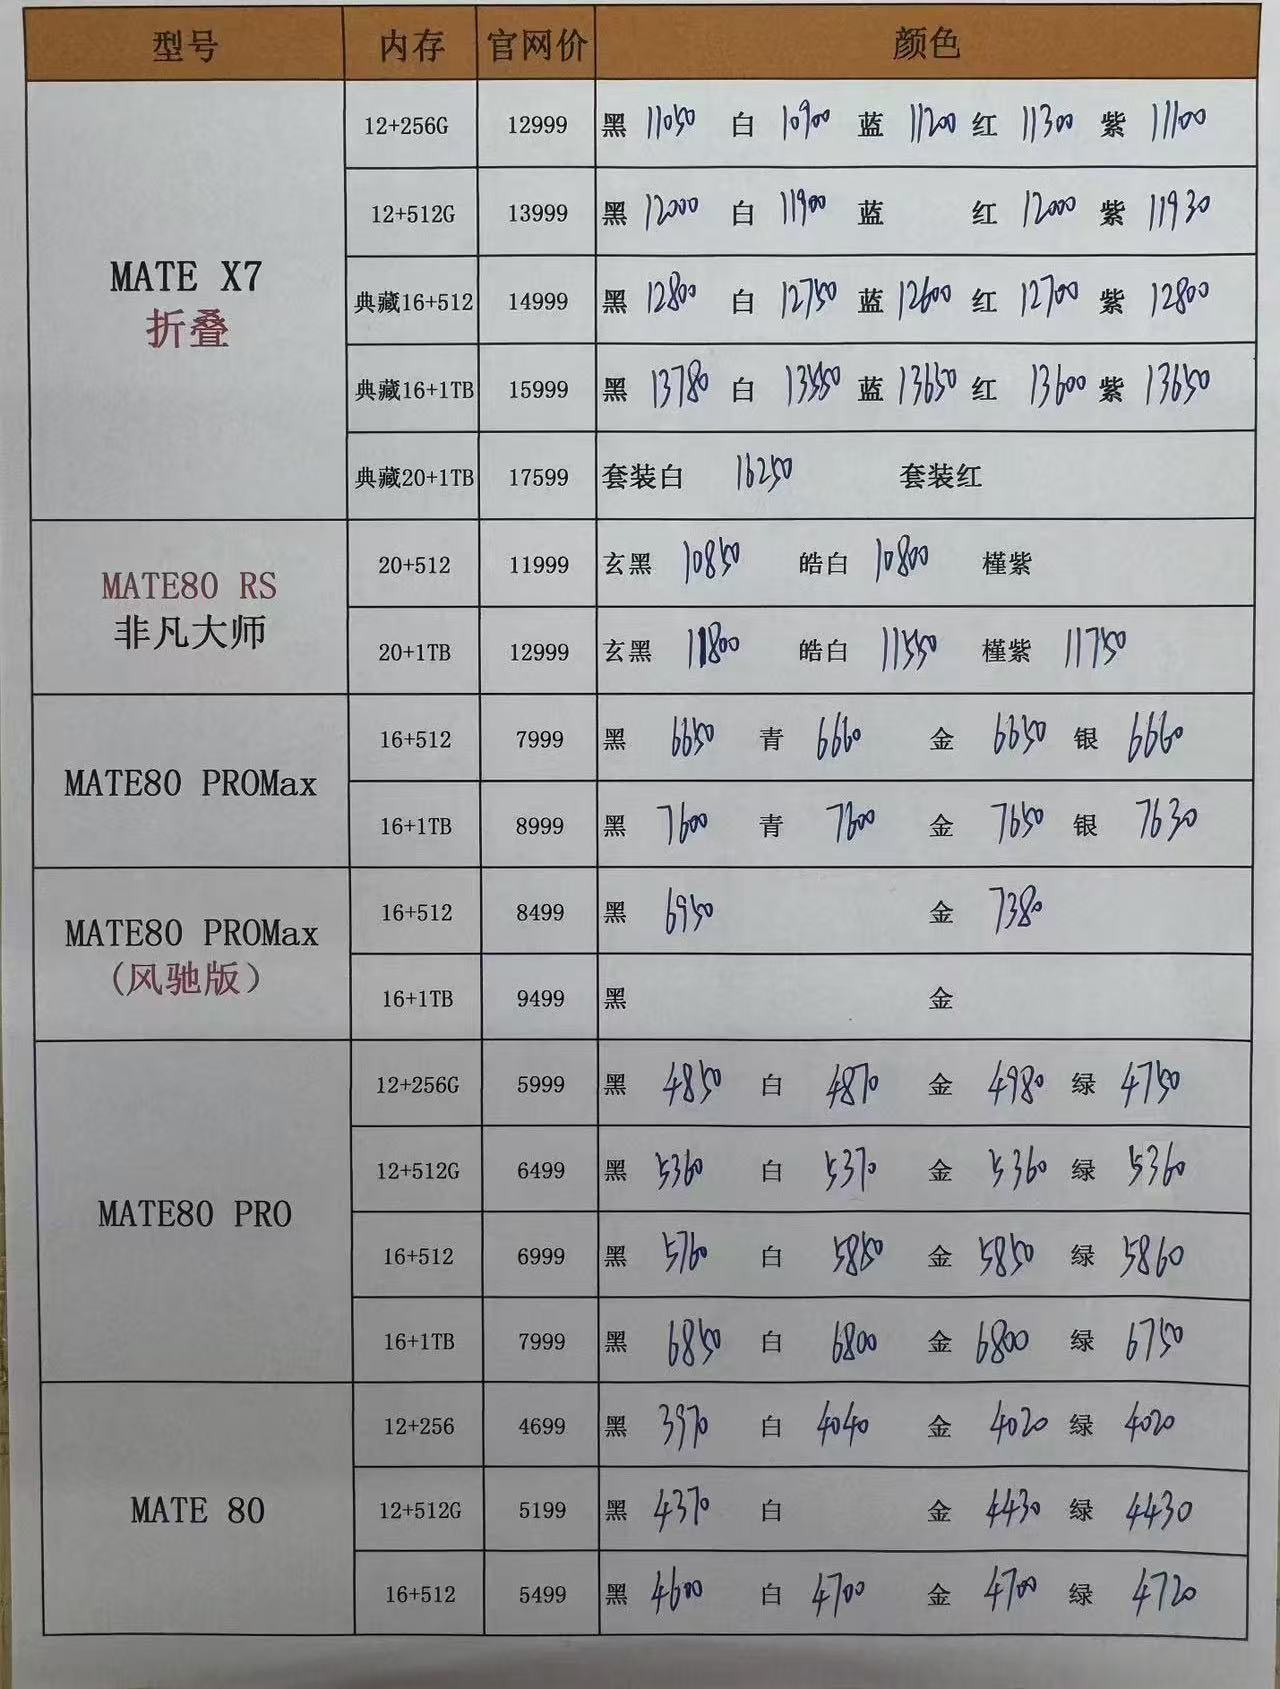 型号 内存 官网价 颜色
12+256G 12999 黑 11050 白 10900 蓝 11200 红 11300 紫 11100
12+512G 13999 黑 12000 白 11900 蓝 红 12000 紫 11930
MATE X7
折叠
典藏16+512 14999 黑 12800 白 12750 蓝 12600 红 12700 紫 12800
典藏16+1TB 15999 黑 13780 白 13550 蓝 13650 红 13600 紫 13650
典藏20+1TB 17599 套装白 16250 套装红
MATE80 RS
非凡大师
20+512 11999 玄黑 10850 皓白 10800 槿紫
20+1TB 12999 玄黑 11800 皓白 11550 槿紫 11750
MATE80 PROMax
16+512 7999 黑 6650 青 6660 金 6650 银 6660
16+1TB 8999 黑 7600 青 7600 金 7650 银 7630
MATE80 PROMax
（风驰版）
16+512 8499 黑 6950 金 7380
16+1TB 9499 黑 金
MATE80 PRO
12+256G 5999 黑 4850 白 4870 金 4980 绿 4750
12+512G 6499 黑 5360 白 5370 金 5360 绿 5360
16+512 6999 黑 5760 白 5850 金 5850 绿 5860
16+1TB 7999 黑 6850 白 6800 金 6800 绿 6750
MATE 80
12+256 4699 黑 3970 白 4040 金 4020 绿 4020
12+512G 5199 黑 4370 白 金 4430 绿 4430
16+512 5499 黑 4600 白 4700 金 4700 绿 4720